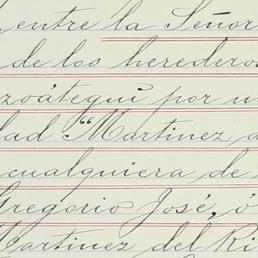 entre la Señor
de los heredero
zoátegui por u
dad "Martinez d
cualquiera de
Gregorio José, ó
Martinez del Ri